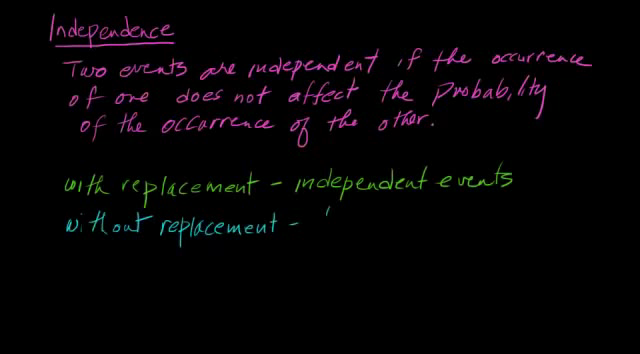 Independence
Two events are independent if the occurrence
of one does not affect the Probability
of the occurrence of the other.
with replacement - independent events
without replacement -